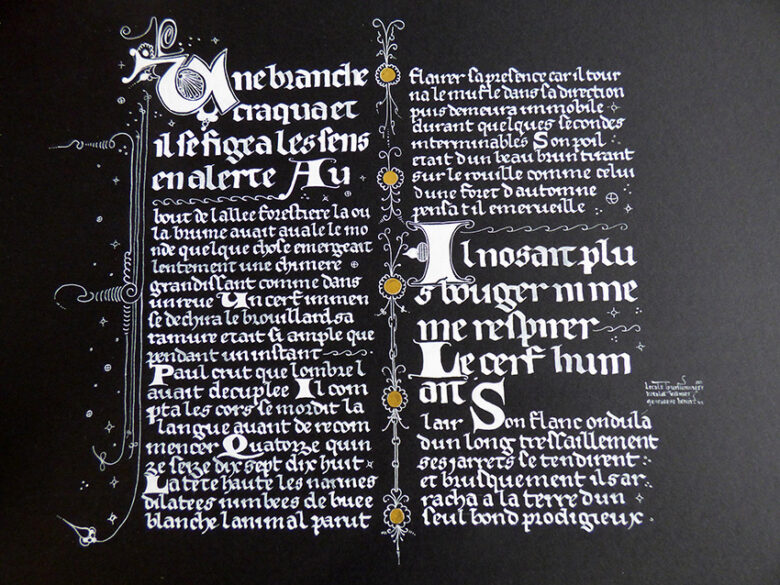 Une branche
craqua et
il se figea les sens
en alerte Au
bout de l allee forestiere la ou
la brume avait avale le mo
nde quelque chose emergeait
lentement une chimere
grandissant comme dans
un reve Un cerf immen
se dechira le brouillard sa
ramure etait si ample que
pendant un instant
Paul crut que l ombre l
avait decuplee Il com
pta les cors se mordit la
langue avant de recom
mencer Quatorze quin
ze seize dix sept dix huit
La tete haute les narines
dilatees nimbees de buee
blanche l animal parut
flairer sa presence car il tour
na le mufle dans sa direction
puis demeura immobile
durant quelques secondes
interminables Son poil
etait d un beau brun tirant
sur le rouille comme celui
d une foret d automne
pensa t il emerveille
Il nosait plu
s bouger ni me
me respirer
Le cerf hum
ait
l air Son flanc ondula
d un long tressaillement
ses jarrets se tendirent
et brusquement il s ar
racha a la terre d un
seul bond prodigieux